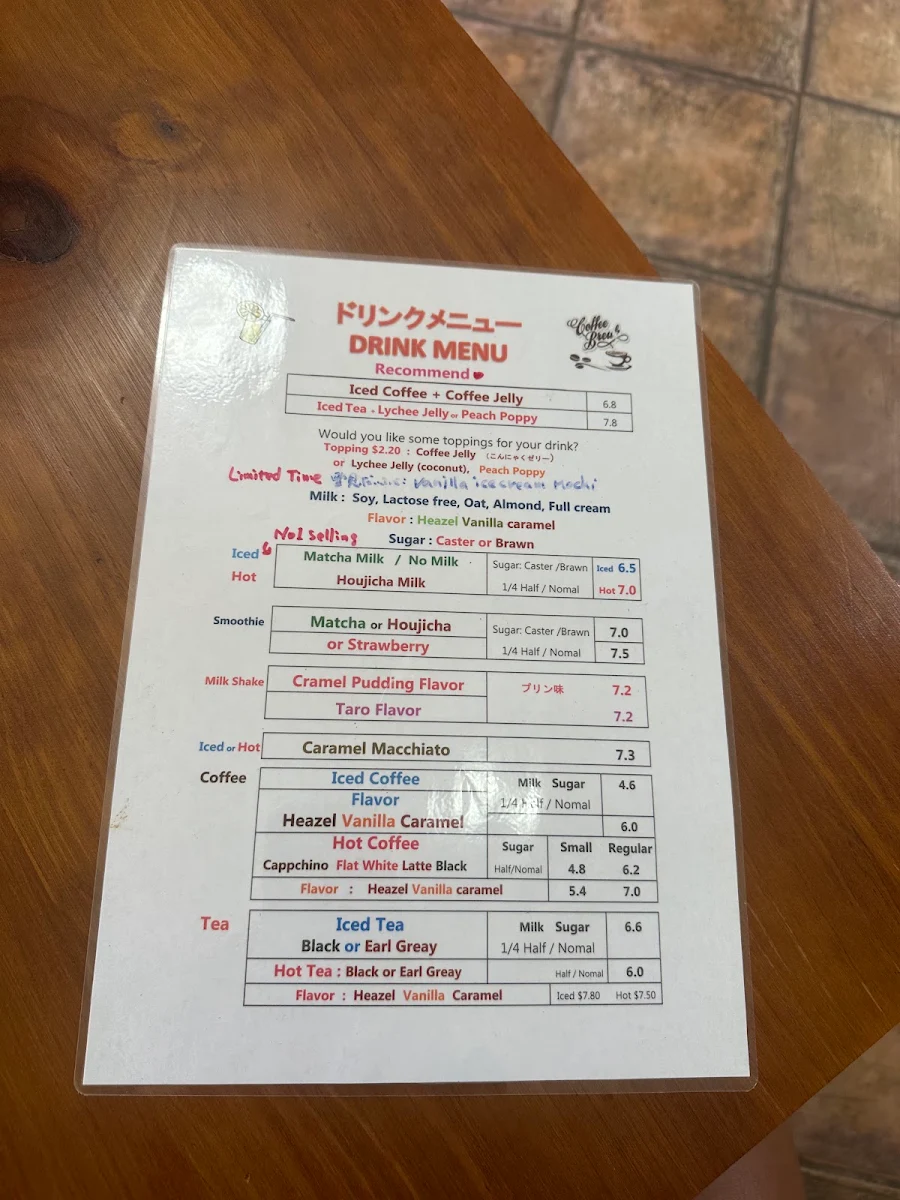 ドリンクメニュー
DRINK MENU
Coffee Brew
Recommend
Iced Coffee + Coffee Jelly 6.8
Iced Tea + Lychee Jelly or Peach Poppy 7.8
Would you like some toppings for your drink?
Topping $2.20 : Coffee Jelly (こんにゃくゼリー)
or Lychee Jelly (coconut), Peach Poppy
Limited Time vanilla icecream mochi
Milk : Soy, Lactose free, Oat, Almond, Full cream
Flavor : Heazel Vanilla caramel
No1 Selling Sugar : Caster or Brawn
Iced Matcha Milk / No Milk Sugar: Caster /Brawn Iced 6.5
Hot Houjicha Milk 1/4 Half / Nomal Hot 7.0
Smoothie Matcha or Houjicha Sugar: Caster /Brawn 7.0
or Strawberry 1/4 Half / Nomal 7.5
Milk Shake Cramel Pudding Flavor プリン味 7.2
Taro Flavor 7.2
Iced or Hot Caramel Macchiato 7.3
Coffee Iced Coffee Milk Sugar 4.6
Flavor 1/4 Half / Nomal
Heazel Vanilla Caramel 6.0
Hot Coffee Sugar Small Regular
Cappchino Flat White Latte Black Half/Nomal 4.8 6.2
Flavor : Heazel Vanilla caramel 5.4 7.0
Tea Iced Tea Milk Sugar 6.6
Black or Earl Greay 1/4 Half / Nomal
Hot Tea : Black or Earl Greay Half / Nomal 6.0
Flavor : Heazel Vanilla Caramel Iced $7.80 Hot $7.50